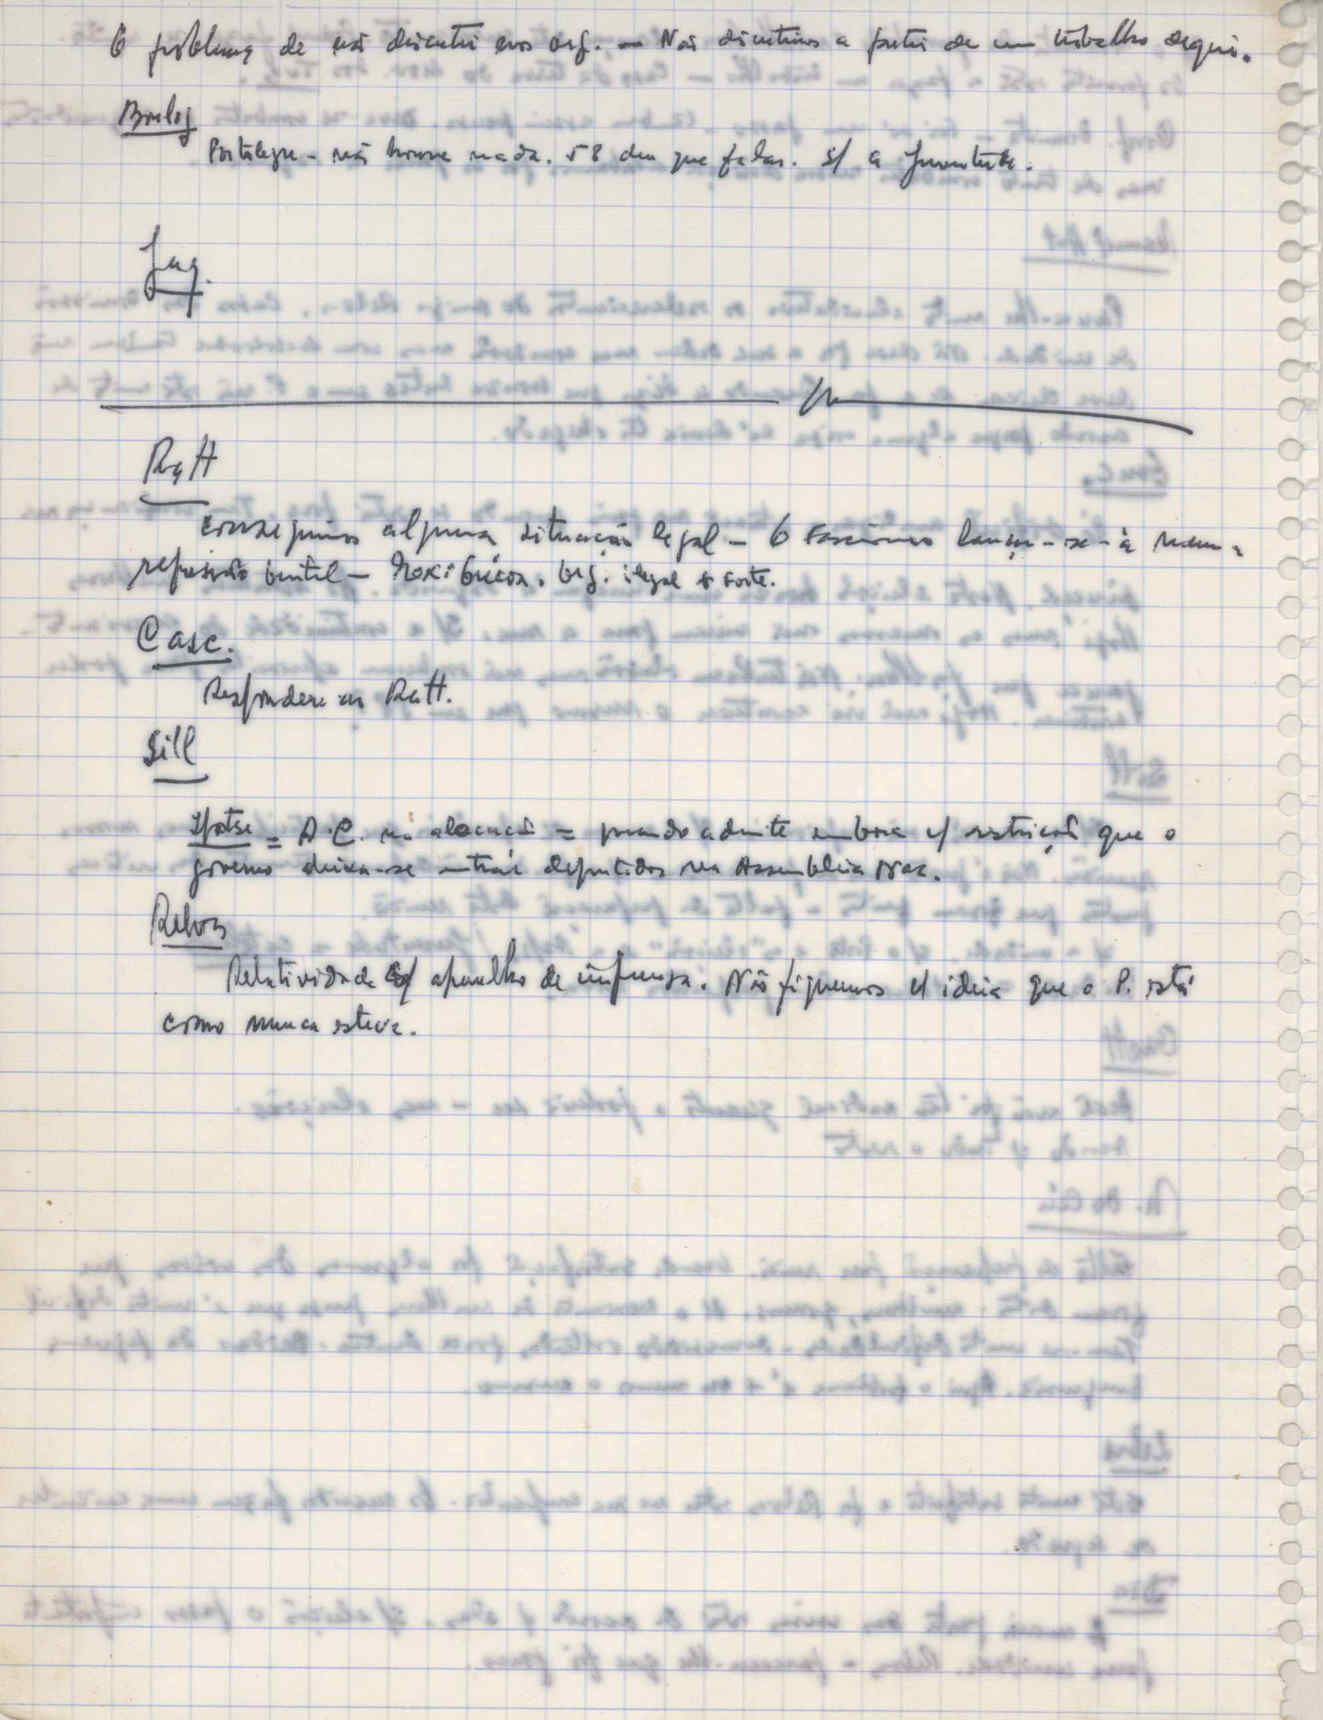 O problema de não discutir nos org. — Nós discutimos a partir de um trabalho
Portalegre - não houve nada. 58 deu que falar. s/ a Juventude.
Jug.
Ratt
Conseguimos alguma situação legal — O Fascismo lança-se-á numa
repressão brutal — Org. ilegal + forte.
Casc.
Respondeu ao Ratt.
Sill
= A.C. na alocução = quando admite embora c/ restrição que o
governo deixa-se entrar deputados na Assembleia Nac.
Relvas
Relatividade s/ aparelho de imprensa. Não fiquemos c/ ideia que o P. está
como nunca esteve.